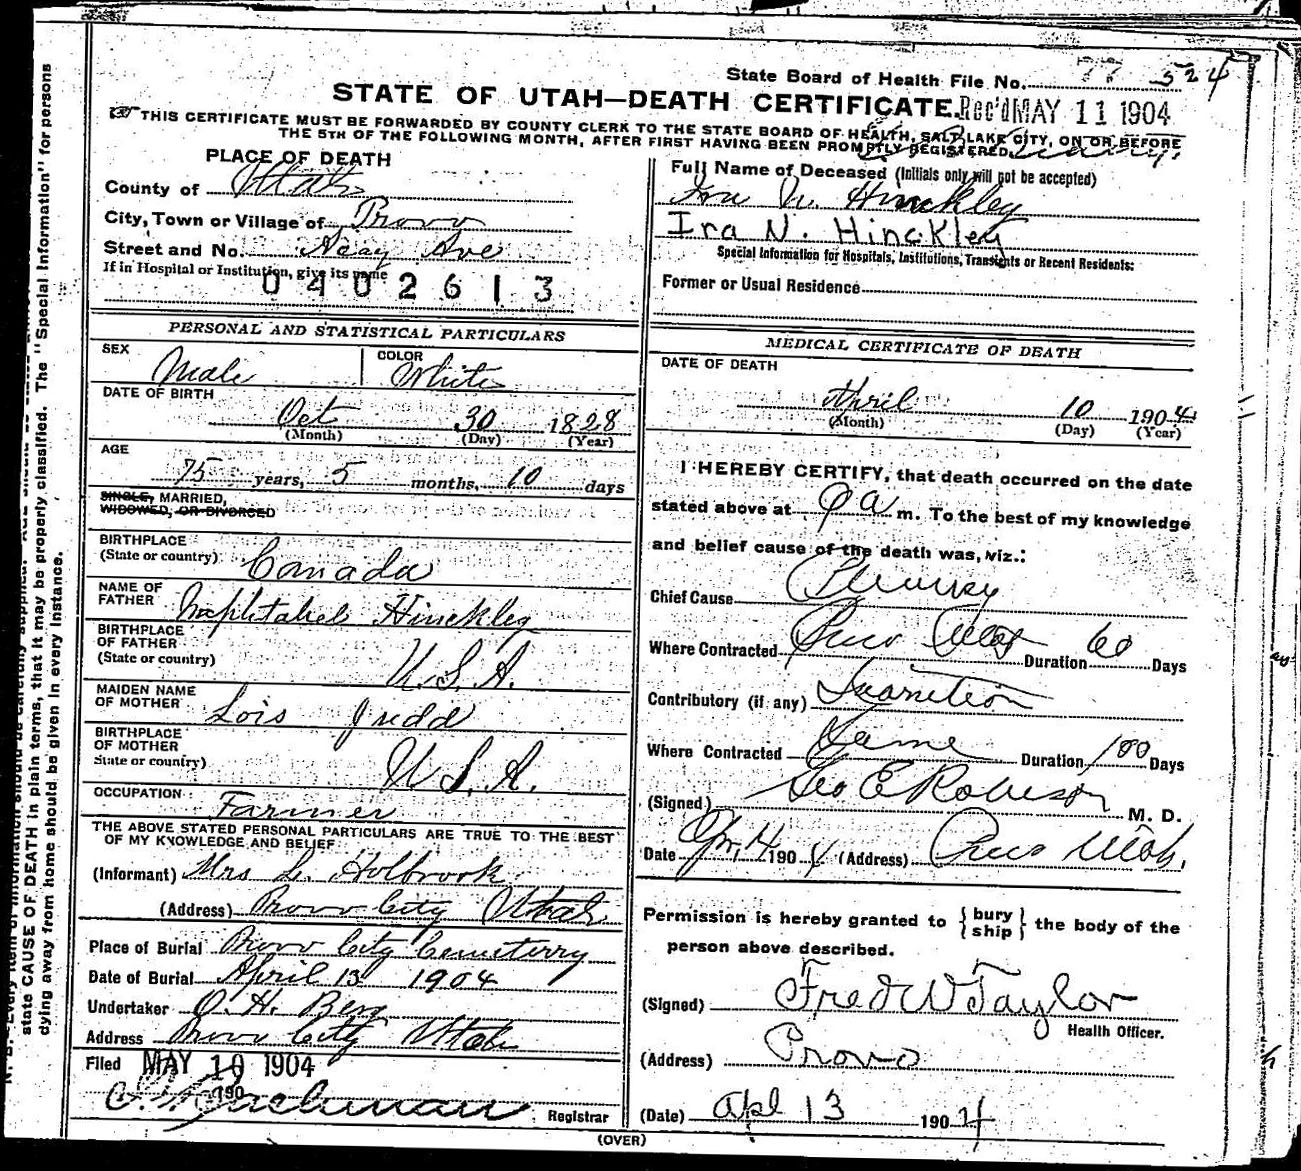 State Board of Health File No. 77 524
STATE OF UTAH—DEATH CERTIFICATE.
Rec'd MAY 11 1904
THIS CERTIFICATE MUST BE FORWARDED BY COUNTY CLERK TO THE STATE BOARD OF HEALTH, SALT LAKE CITY, ON OR BEFORE
THE 5TH OF THE FOLLOWING MONTH, AFTER FIRST HAVING BEEN PROMPTLY REGISTERED.
PLACE OF DEATH
County of Utah
City, Town or Village of Provo
Street and No. Ave
If in Hospital or Institution, give its name
0402613
Full Name of Deceased (Initials only will not be accepted)
Ira N. Hinckley
Ira N. Hinckley
Special Information for Hospitals, Institutions, Transients or Recent Residents:
Former or Usual Residence
PERSONAL AND STATISTICAL PARTICULARS
SEX Male
COLOR White
DATE OF BIRTH
Oct 30 1828
(Month) (Day) (Year)
AGE
75 years, 5 months, 10 days
SINGLE, MARRIED,
WIDOWED, OR DIVORCED
BIRTHPLACE
(State or country) Canada
NAME OF
FATHER Hinckley
BIRTHPLACE
OF FATHER
(State or country) U. S. A.
MAIDEN NAME
OF MOTHER Lois Judd
BIRTHPLACE
OF MOTHER
State or country) U S. A.
OCCUPATION
Farmer
THE ABOVE STATED PERSONAL PARTICULARS ARE TRUE TO THE BEST
OF MY KNOWLEDGE AND BELIEF
(Informant) Mrs L. Holbrook
(Address) Provo City Utah
Place of Burial Provo City Cemeterry
Date of Burial April 13 1904
Undertaker O. H. Berg
Address Provo City Utah
Filed MAY 10 1904
190
Registrar
MEDICAL CERTIFICATE OF DEATH
DATE OF DEATH
April 10 1904
(Month) (Day) (Year)
I HEREBY CERTIFY, that death occurred on the date
stated above at 9 a m. To the best of my knowledge
and belief cause of the death was, viz.:
Chief Cause Pleurisy
Where Contracted Provo Utah Duration 60 Days
Contributory (if any) Inanition
Where Contracted Same Duration 100 Days
(Signed) Geo E Robison M. D.
Date Apr, 190 4 (Address) Provo Utah.
Permission is hereby granted to {bury ship} the body of the
person above described.
(Signed) Fred W Taylor
Health Officer.
(Address) Provo
(Date) Apl 13 1904
(OVER)
state CAUSE OF DEATH in plain terms, that it may be properly classified. The "Special Information" for persons
dying away from home should be given in every instance.